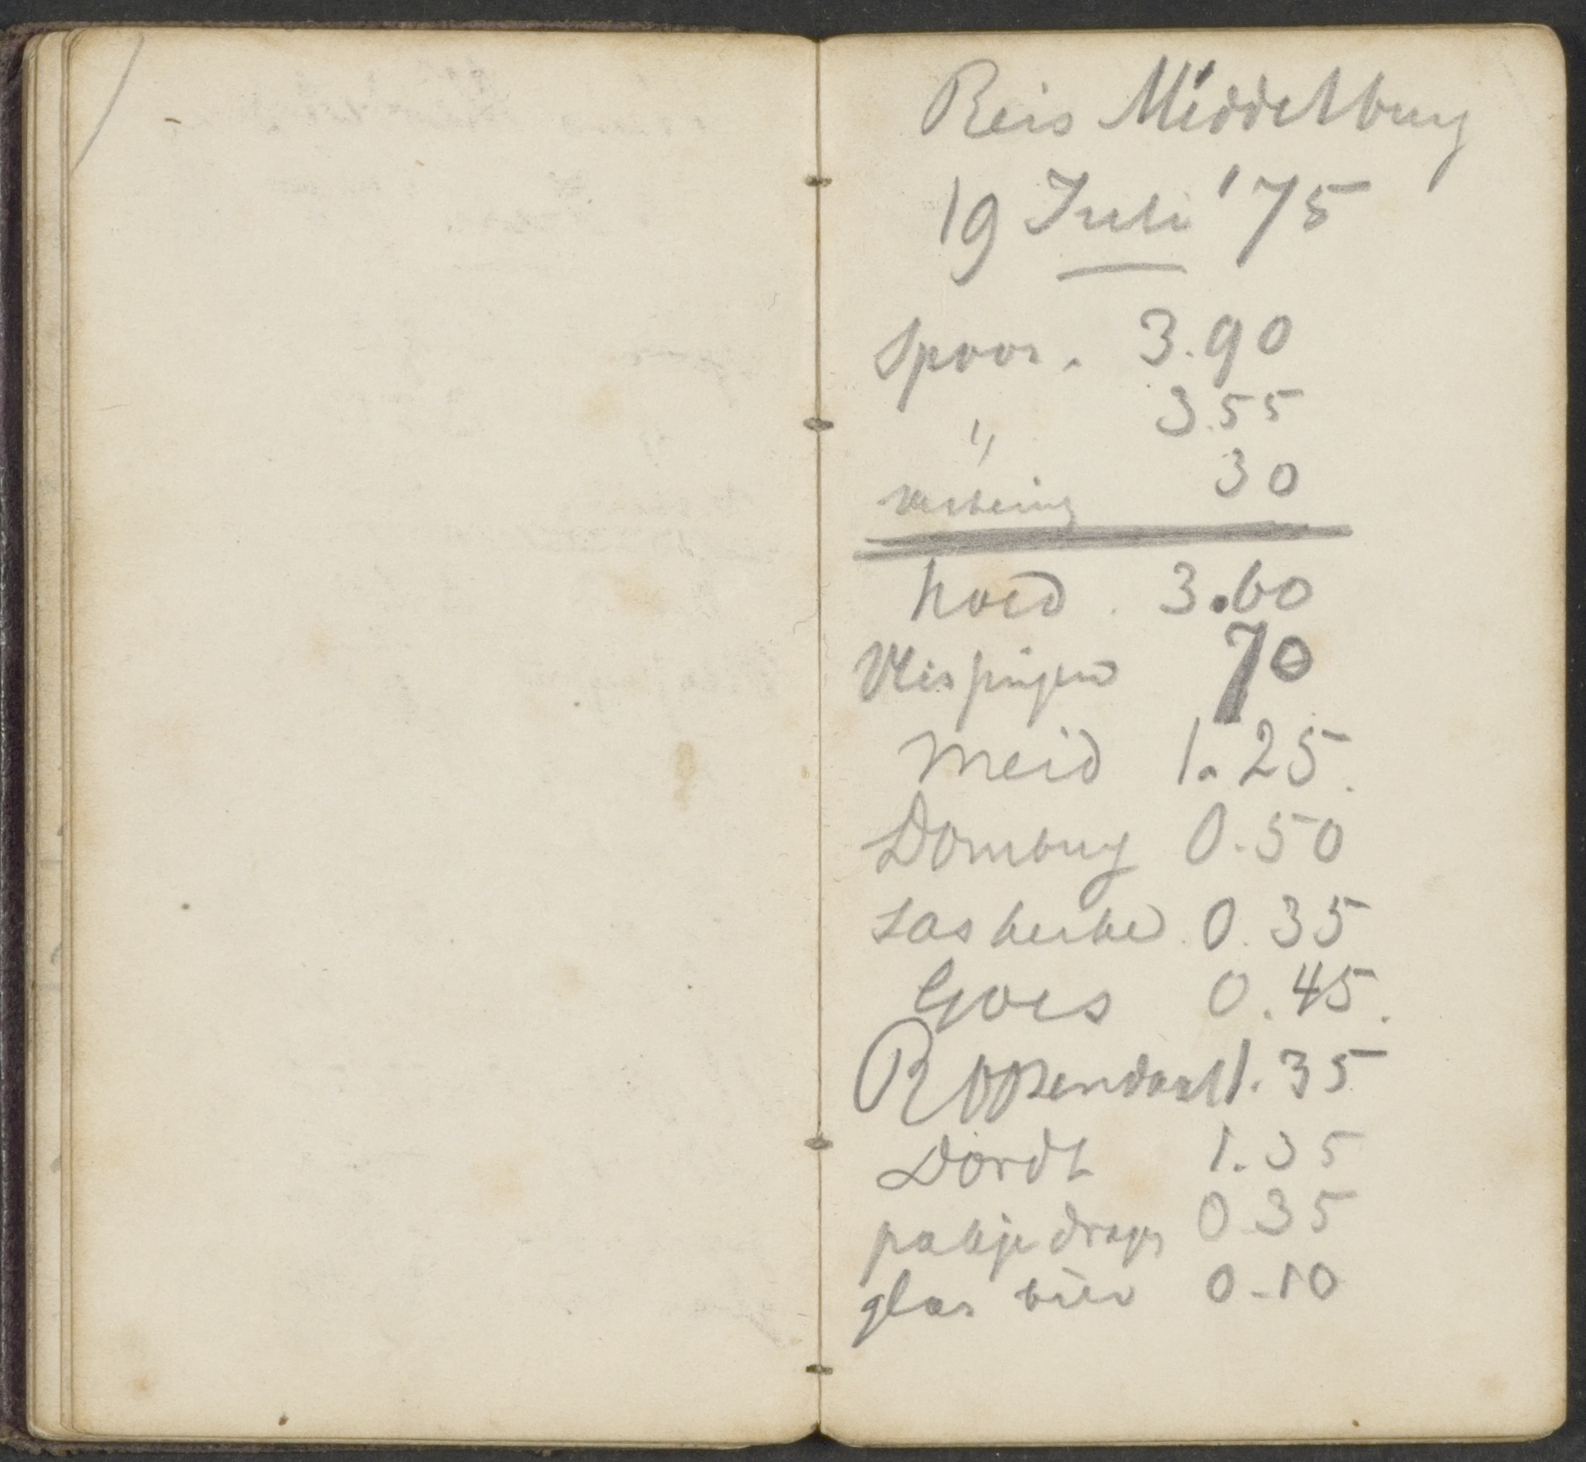 Reis Middelburg
19 Juli '75
Spoor. 3.90
" 3.55
vertering 30
hoed. 3.60
Vlissingen 70
Meid 1.25.
Domburg 0.50
0.35
Goes 0.45.
Roosendaal 1.35
Dordt 1.35
pakje drager 0.35
glas bier 0.10